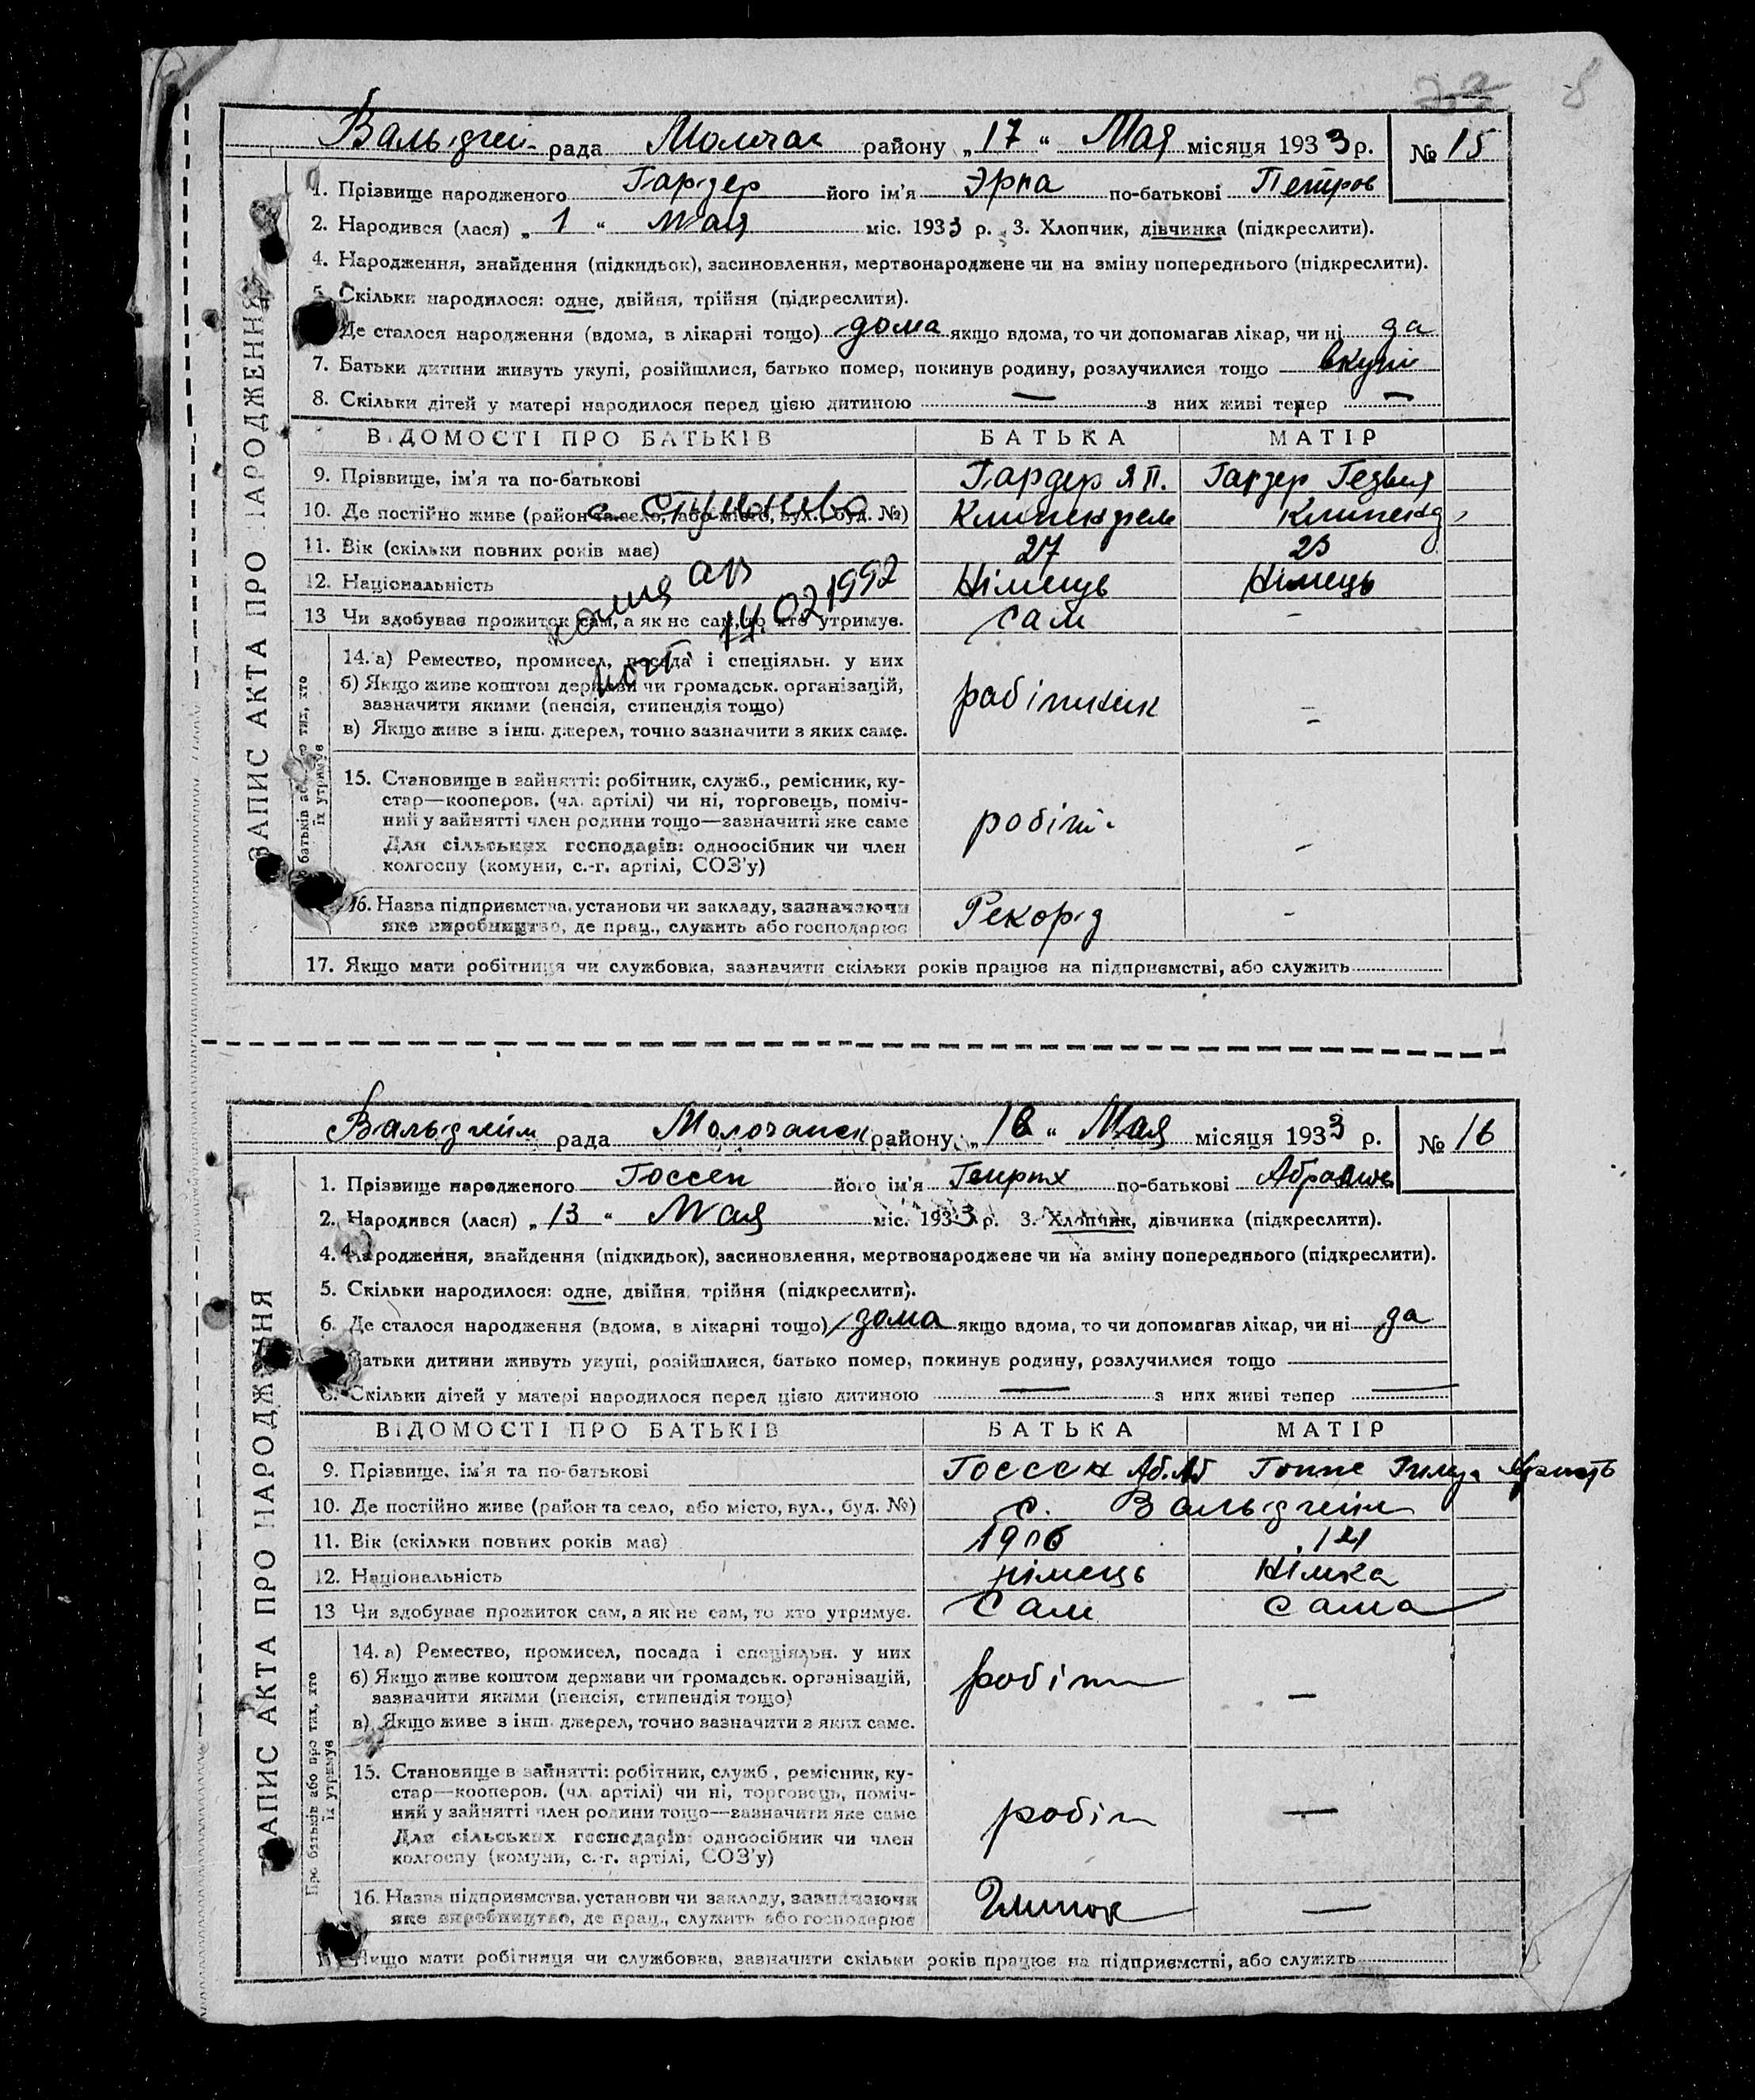 8
Вальдгей рада Молочас району „17“ Мая місяця 1933 р. № 15
ЗАПИС АКТА ПРО НАРОДЖЕННЯ
1. Прізвище народженого Гардер його ім'я Эрна по-батькові Петров
2. Народився (лася) „1“ Мая міс. 1933 р. 3. Хлопчик, дівчинка (підкреслити).
4. Народження, знайдення (підкидьок), засиновлення, мертвонароджене чи на зміну попереднього (підкреслити).
5. Скільки народилося: одне, двійня, трійня (підкреслити).
Де сталося народження (вдома, в лікарні тощо) дома якщо вдома, то чи допомагав лікар, чи ні да
7. Батьки дитини живуть укупі, розійшлися, батько помер, покинув родину, розлучилися тощо вкупі
8. Скільки дітей у матері народилося перед цією дитиною — з них живі тепер —
ВІДОМОСТІ ПРО БАТЬКІВ БАТЬКА МАТІР
9. Прізвище, ім'я та по-батькові Гардер Я П. Гардер Гедвиг
10. Де постійно живе (район та село, або місто, вул., буд. №)
11. Вік (скільки повних років має) 27 23
12. Національність Німець Німець
14.02 1992
13 Чи здобуває прожиток сам, а як не сам, то хто утримує. сам –
батьків або про тих, хто їх утримує
14. а) Ремество, промисел, посада і спеціяльн. у них
б) Якщо живе коштом держави чи громадськ. організацій,
зазначити якими (пенсія, стипендія тощо) робітник –
в) Якщо живе з інш. джерел, точно зазначити з яких саме.
15. Становище в зайнятті: робітник, служб., ремісник, ку-
стар—кооперов. (чл. артілі) чи ні, торговець, поміч-
ний у зайнятті член родини тощо—зазначити яке саме робітн. –
Для сільських господарів: одноосібник чи член
колгоспу (комуни, с.-г. артілі, СОЗ'у)
16. Назва підприємства, установи чи закладу, зазначаючи Рекорд –
яке виробництво, де прац., служить або господарює
17. Якщо мати робітниця чи службовка, зазначити скільки років працює на підприємстві, або служить
Вальдгейм рада Молочанск району „18“ Мая місяця 1933 р. № 16
ЗАПИС АКТА ПРО НАРОДЖЕННЯ
1. Прізвище народженого Госсен його ім'я Генрих по-батькові Абрамов
2. Народився (лася) „13“ Мая міс. 1933 р. 3. Хлопчик, дівчинка (підкреслити).
4. Народження, знайдення (підкидьок), засиновлення, мертвонароджене чи на зміну попереднього (підкреслити).
5. Скільки народилося: одне, двійня, трійня (підкреслити).
6. Де сталося народження (вдома, в лікарні тощо) дома якщо вдома, то чи допомагав лікар, чи ні да
Батьки дитини живуть укупі, розійшлися, батько помер, покинув родину, розлучилися тощо —
8. Скільки дітей у матері народилося перед цією дитиною — з них живі тепер —
ВІДОМОСТІ ПРО БАТЬКІВ БАТЬКА МАТІР
9. Прізвище, ім'я та по-батькові Госсен Аб. Аб
10. Де постійно живе (район та село, або місто, вул., буд. №) с. Вальдгейм
11. Вік (скільки повних років має) 1906
12. Національність німець Німка
13 Чи здобуває прожиток сам, а як не сам, то хто утримує. Сам сама
Про батьків або про тих, хто їх утримує
14. а) Ремество, промисел, посада і спеціяльн. у них
б) Якщо живе коштом держави чи громадськ. організацій,
зазначити якими (пенсія, стипендія тощо) робітн —
в) Якщо живе з інш. джерел, точно зазначити з яких саме.
15. Становище в зайнятті: робітник, служб., ремісник, ку-
стар—кооперов. (чл. артілі) чи ні, торговець, поміч-
ний у зайнятті член родини тощо—зазначити яке саме робітн —
Для сільських господарів: одноосібник чи член
колгоспу (комуни, с.-г. артілі, СОЗ'у)
16. Назва підприємства, установи чи закладу, зазначаючи —
яке виробництво, де прац., служить або господарює
Якщо мати робітниця чи службовка, зазначити скільки років працює на підприємстві, або служить